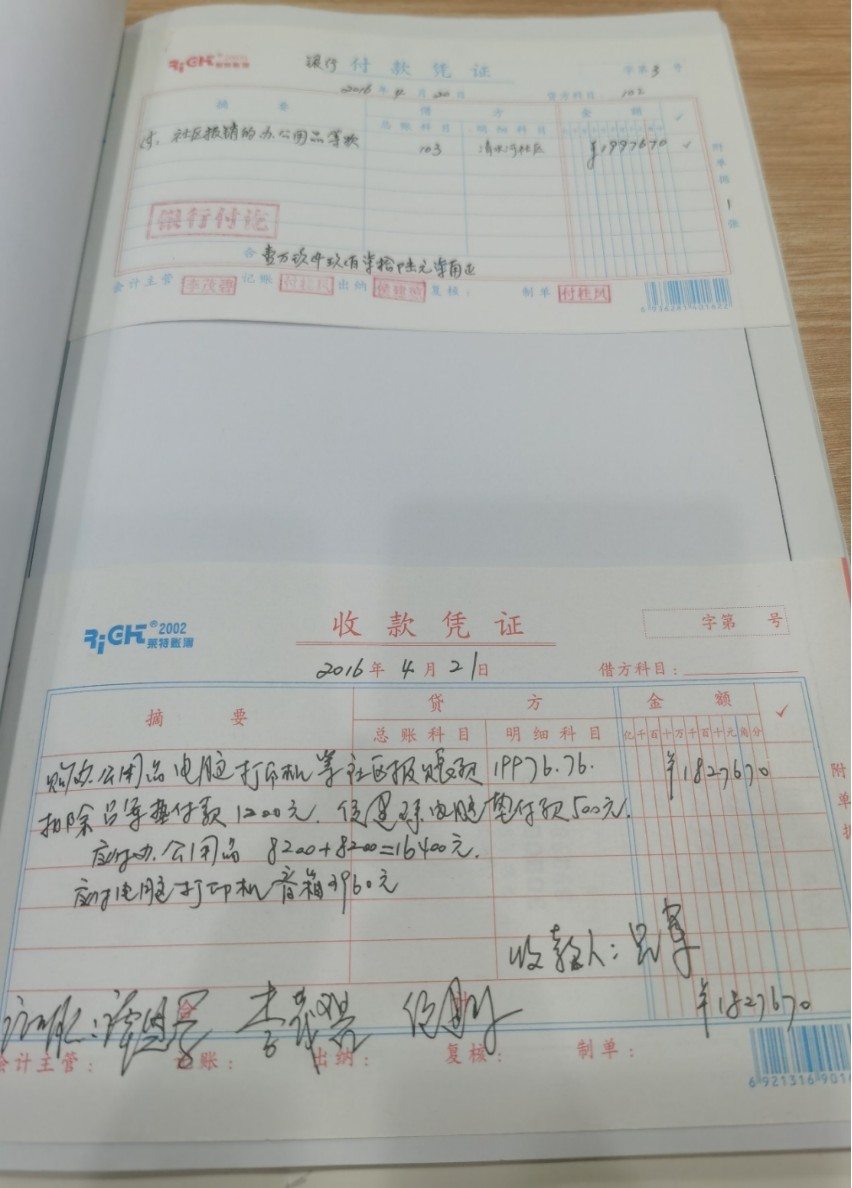 RiGHT
银行 付款凭证
字第 3 号
2016 年 4 月 20 日
贷方科目 102
摘 要
借 方
金 额
总账科目 明细科目
付: 社区报销的办公用品等款 103 清水河社区 ¥1997670
附单据 1 张
银行付讫
合 壹万玖仟玖佰柒拾陆元柒角正
会计主管 记账 付桂凤 出纳 复核: 制单 付桂凤
6 936281 901622
RiGHT®2002
莱特账簿
收款凭证
字第 号
2016 年 4 月 21 日
借方科目:
摘 要
贷 方
金 额
总账科目 明细科目 亿千百十万千百十元角分
购办公用品电脑打印机等社区报账款 19976.76. ¥1827670
扣除吕军垫付款1200元. 电脑垫付款500元.
应付办公用品 8200+8200=16400元.
应付电脑打印机音箱3960元
附单据
收款人: 吕军
¥1827670
会计主管: 记账: 出纳: 复核: 制单:
6 921316 9016